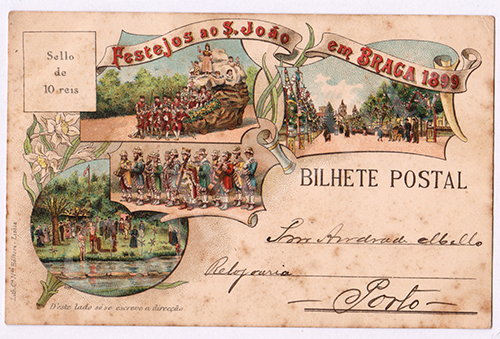 Festejos ao S. João
em BRAGA 1899
Sello
de
10 reis
BILHETE POSTAL
Andrade Mello
Relojoaria
Porto
D'este lado só se escreve a direcção.